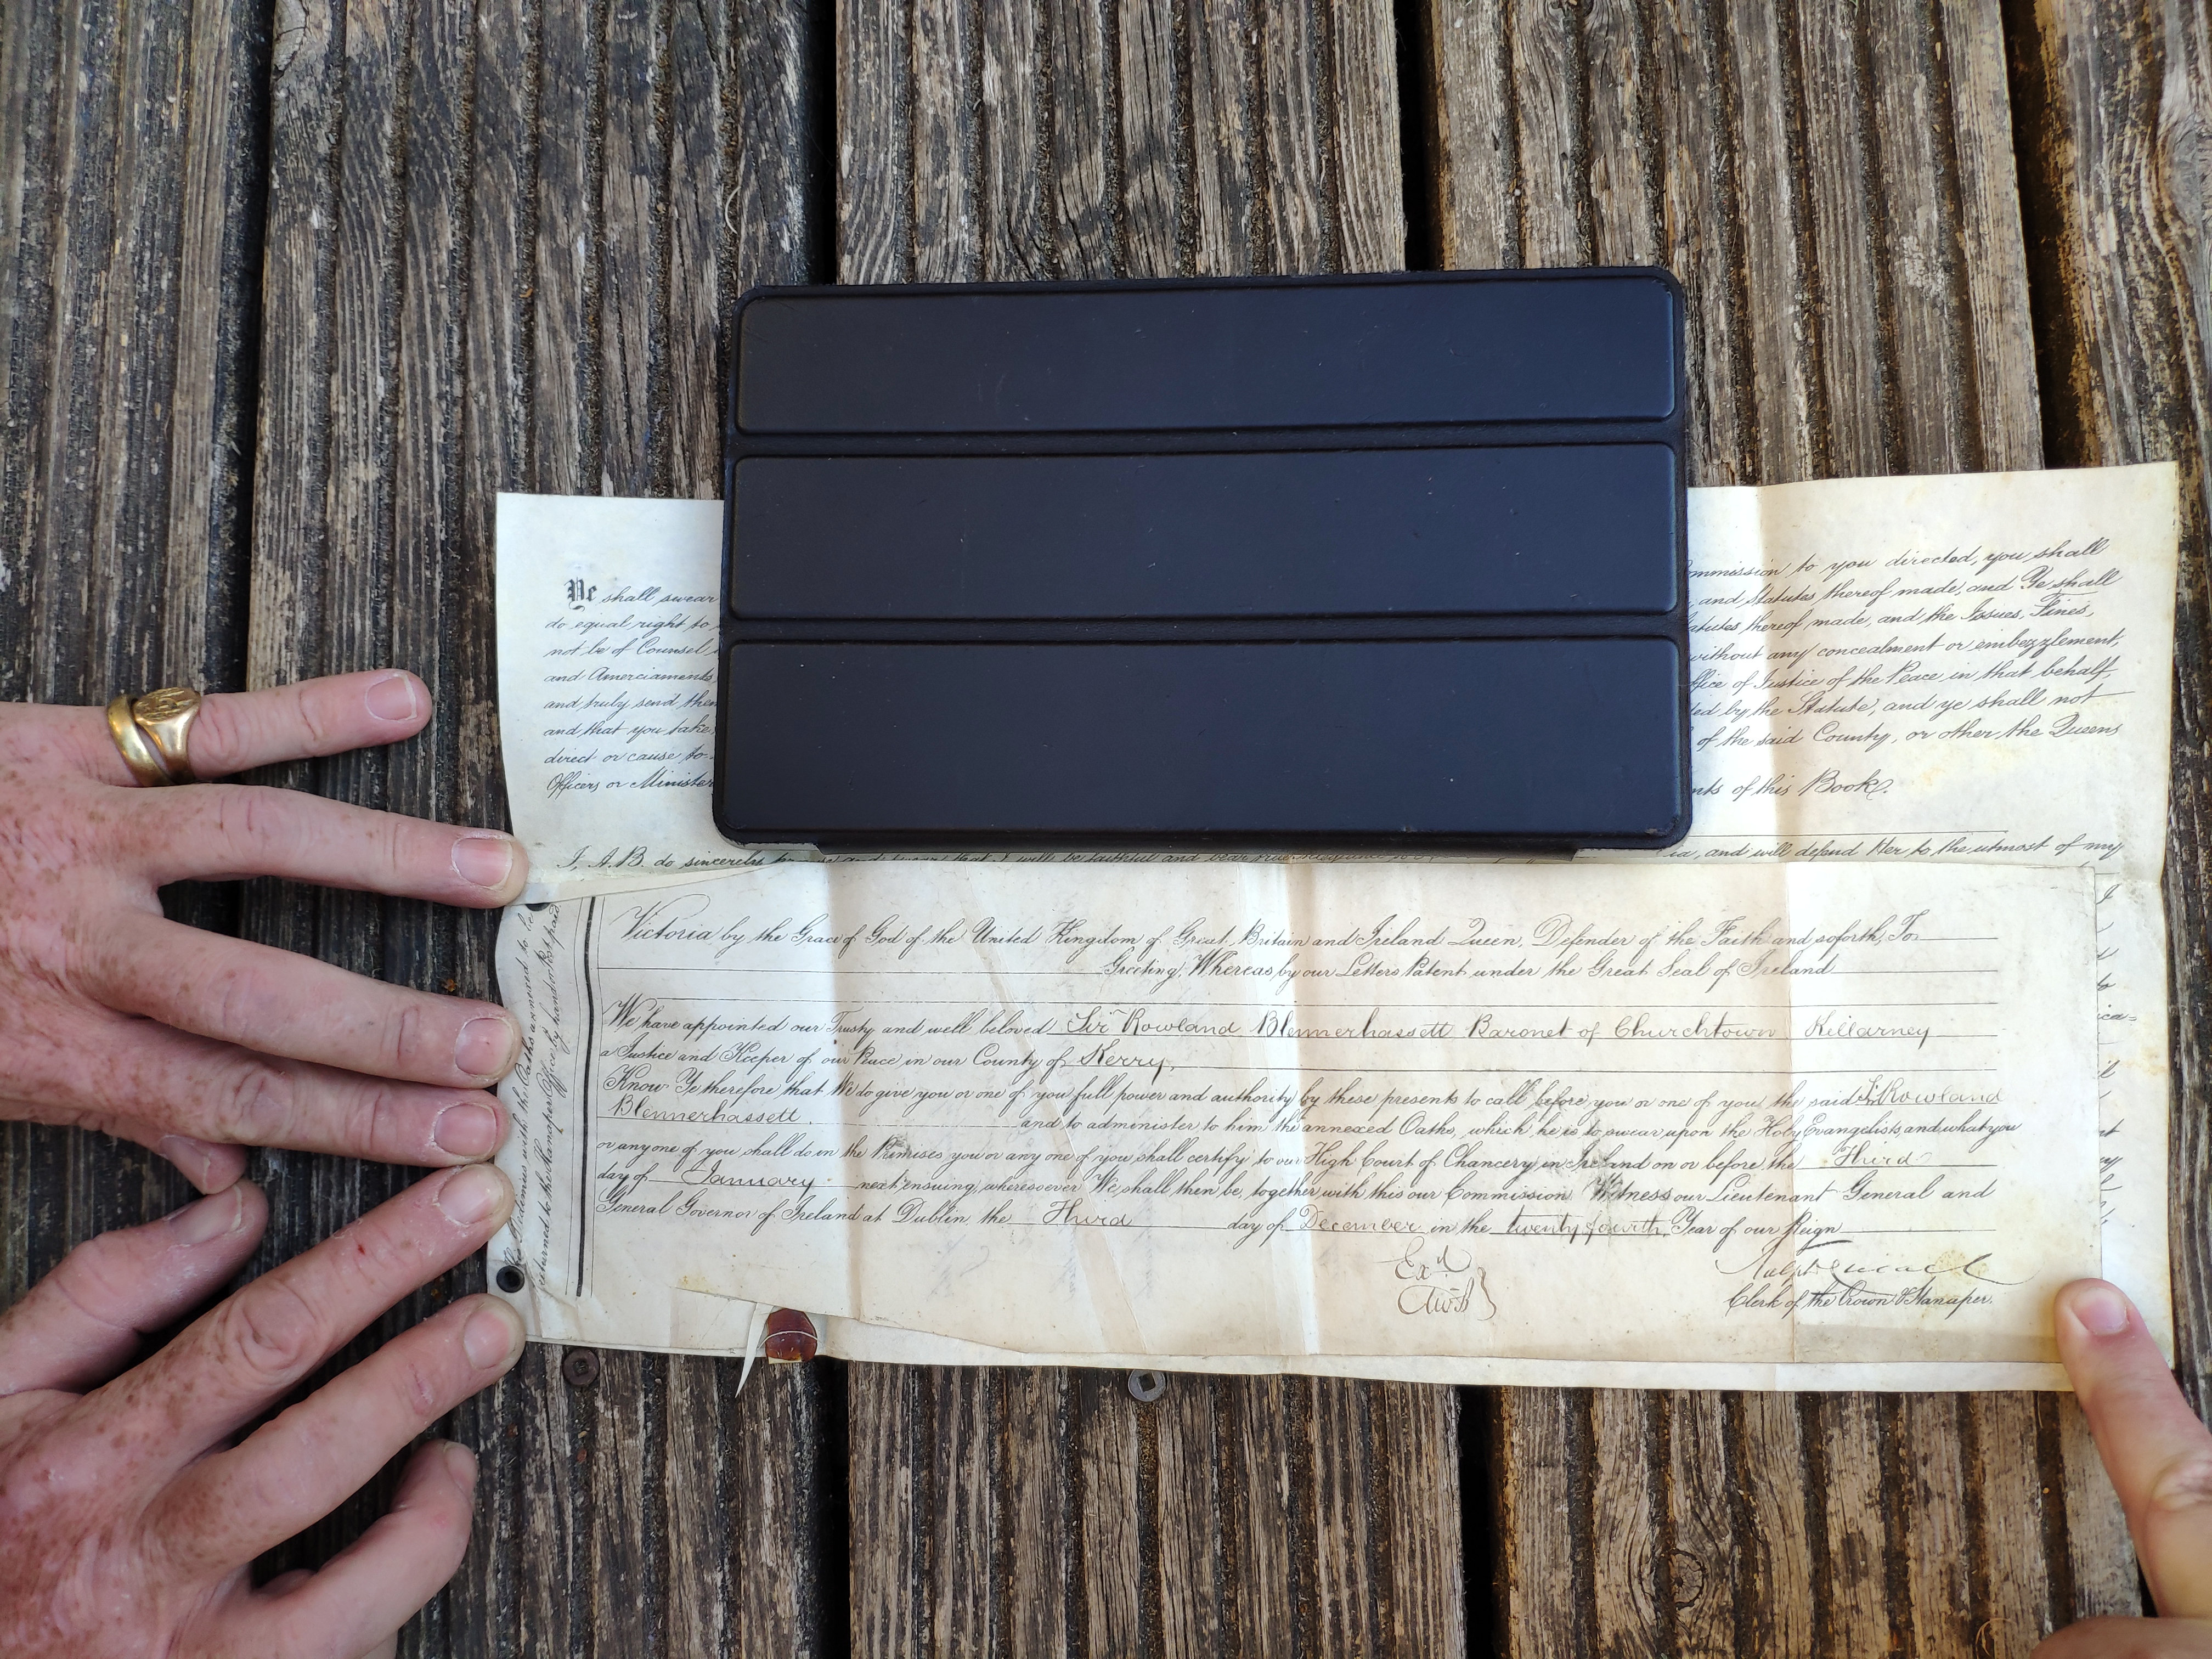 Ye shall swear
ommission to you directed, you shall
do equal right to
and Statutes thereof made, and Ye shall
not be of Counsel
atutes thereof made, and the Issues, Fines,
and Amerciaments,
without any concealment or embezzlement,
and truly send them
ffice of Justice of the Peace in that behalf,
and that you take
ted by the Statute, and ye shall not
direct or cause to
of the said County, or other the Queens
Officers or Minister
nts of this Book.
I, A.B. do sincerely and swear that I will be faithful and bear true and will defend Her to the utmost of my
Victoria by the Grace of God of the United Kingdom of Great Britain and Ireland Queen, Defender of the Faith and soforth, To
Greeting, Whereas by our Letters Patent under the Great Seal of Ireland
We have appointed our Trusty and well beloved Sir Rowland Blennerhassett Baronet of Churchtown Killarney
a Justice and Keeper of our Peace in our County of Kerry,
Know Ye therefore that We do give you or one of you full power and authority by these presents to call before you or one of you the said Sr. Rowland
Blennerhassett and to administer to him the annexed Oaths, which he is to swear upon the Holy Evangelists, and what you
or any one of you shall do in the Premises you or any one of you shall certify to our High Court of Chancery in Ireland on or before the Third
day of January next ensuing, wheresoever We shall then be, together with this our Commission Witness our Lieutenant General and
General Governor of Ireland at Dublin the Third day of December in the twenty fourth Year of our Reign
Exd
Ralph
Clerk of the Crown & Hanaper.
with the Oaths annexed to be
returned to the Hanaper Office by hand or Post paid.